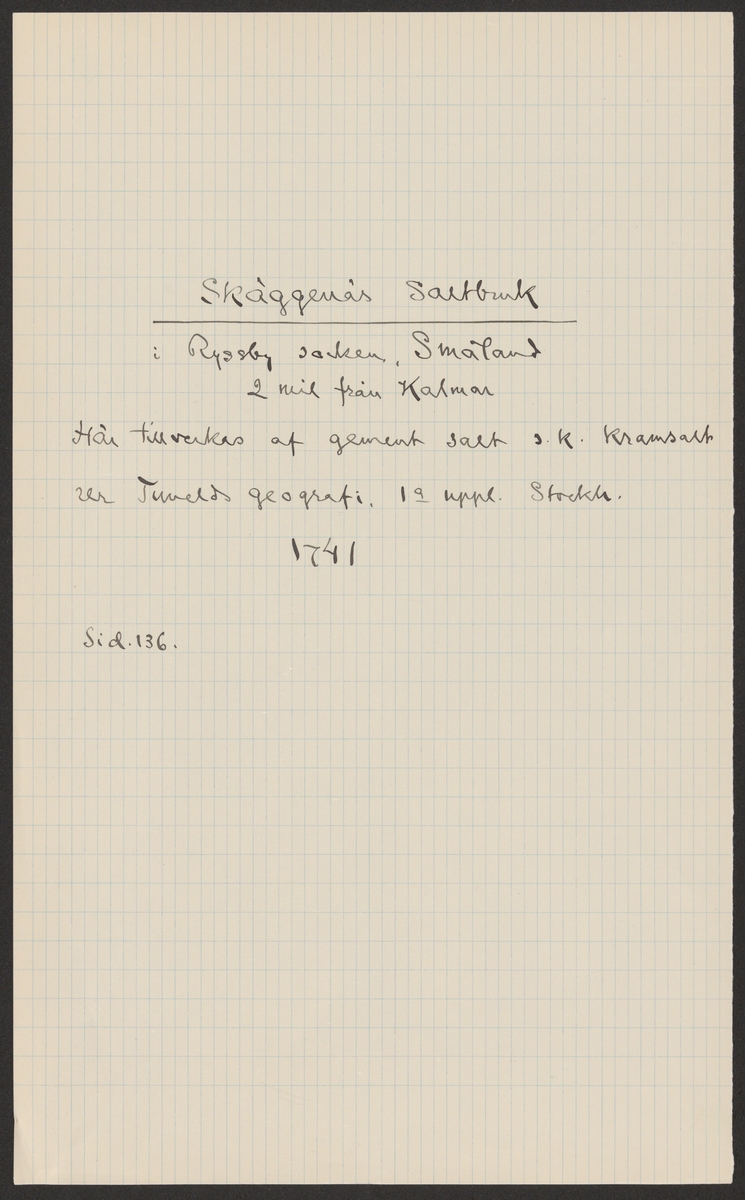 Skäggenäs Saltbruk
i Ryssby socken, Småland
2 mil från Kalmar
Här tillverkas af gement salt s.k. kramsalt
Tunelds geografi, 1a uppl. Stockh.
1741
Sid. 136.